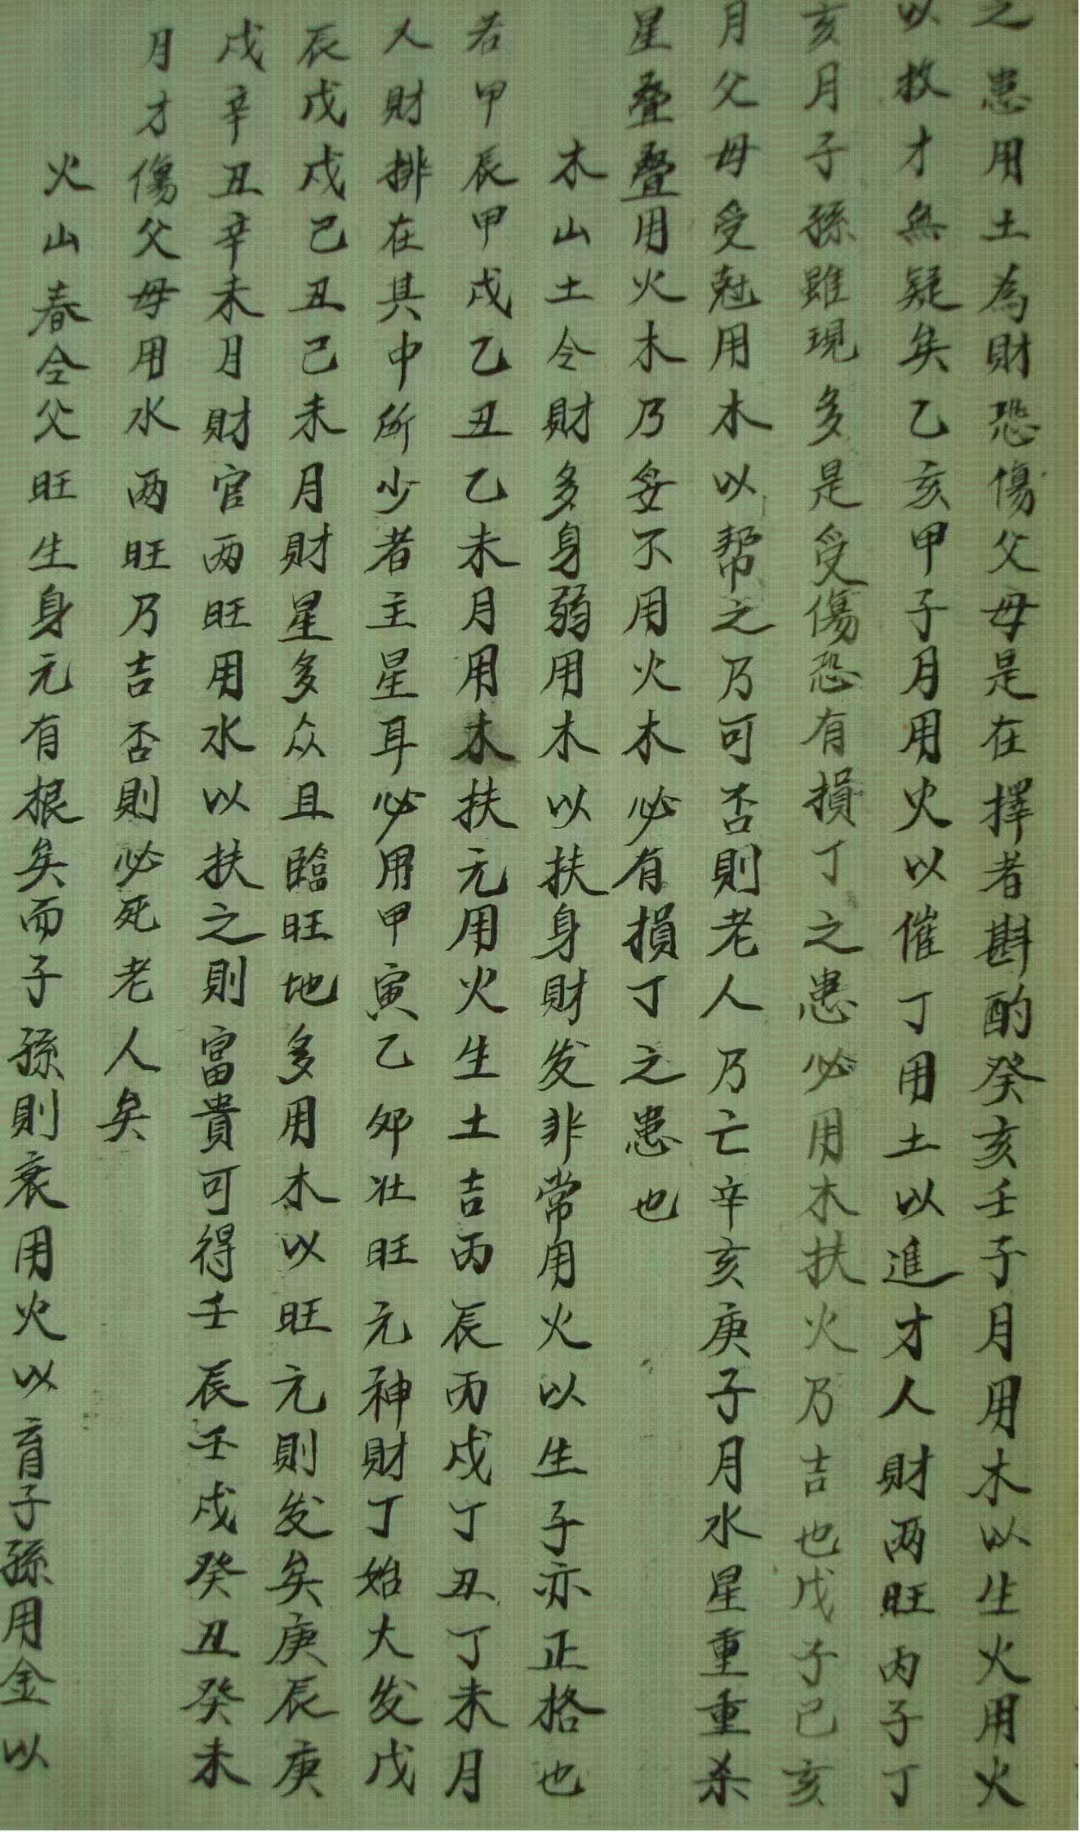 之患用土為財恐傷父母是在擇者斟酌癸亥壬子月用木以生火用火
以救才無疑矣乙亥甲子月用火以催丁用土以進才人財两旺丙子丁
亥月子孫雖現多是受傷恐有損丁之患必用木扶火乃吉也戊子己亥
月父母受尅用木以帮之乃可否則老人乃亡辛亥庚子月水星重重杀
星叠叠用火木乃妥不用火木必有損丁之患也
木山土令財多身弱用木以扶身財发非常用火以生子亦正格也
若甲辰甲戌乙丑乙未月用木扶元用火生土吉丙辰丙戌丁丑丁未月
人財排在其中所少者主星耳必用甲寅乙夘壮旺元神財丁始大发戊
辰戊戌己丑己未月財星多众且臨旺地多用木以旺元則发矣庚辰庚
戌辛丑辛未月財官两旺用水以扶之則富貴可得壬辰壬戌癸丑癸未
月才傷父母用水两旺乃吉否則必死老人矣
火山春令父旺生身元有根矣而子孫則衰用火以育子孫用金以